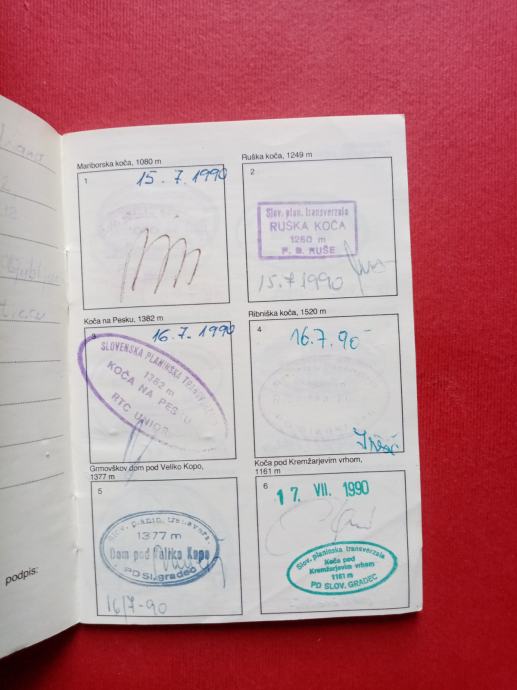 podpis:
Mariborska koča, 1080 m
1
15. 7. 1990
Ruška koča, 1249 m
2
Slov. plan. transverzala
RUŠKA KOČA
1250 m
P. D. RUŠE
15.7 1990
Koča na Pesku, 1382 m
3
16.7. 1990
SLOVENSKA PLANINSKA TRANSVERZALA
1382 m
KOČA NA PESKU
RTC UNIOR
Ribniška koča, 1520 m
4
16.7. 90
Grmovškov dom pod Veliko Kopo,
1377 m
5
Slov. planin. transverz.
1377 m
Dom pod Veliko Kopo
PD Sl. gradec
16/7-90
Koča pod Kremžarjevim vrhom,
1161 m
6
17. VII. 1990
Slov. planinska transverzala
Koča pod
Kremžarjevim vrhom
1161 m
PD SLOV. GRADEC